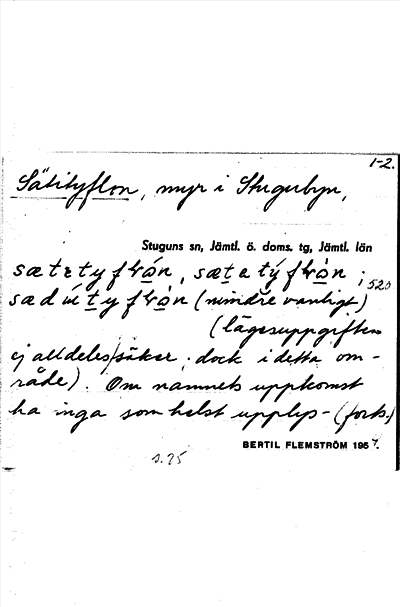 1-2.
Sätityflon, myr i Stugubyn,
Stuguns sn, Jämtl. ö. doms. tg, Jämtl. län
520
(mindre vanligt)
(lägesuppgiften
ej alldeles säker; dock i detta om-
råde). Om namnets uppkomst
ha inga som helst upplys- (forts.)
BERTIL FLEMSTRÖM 1957.
s. 25